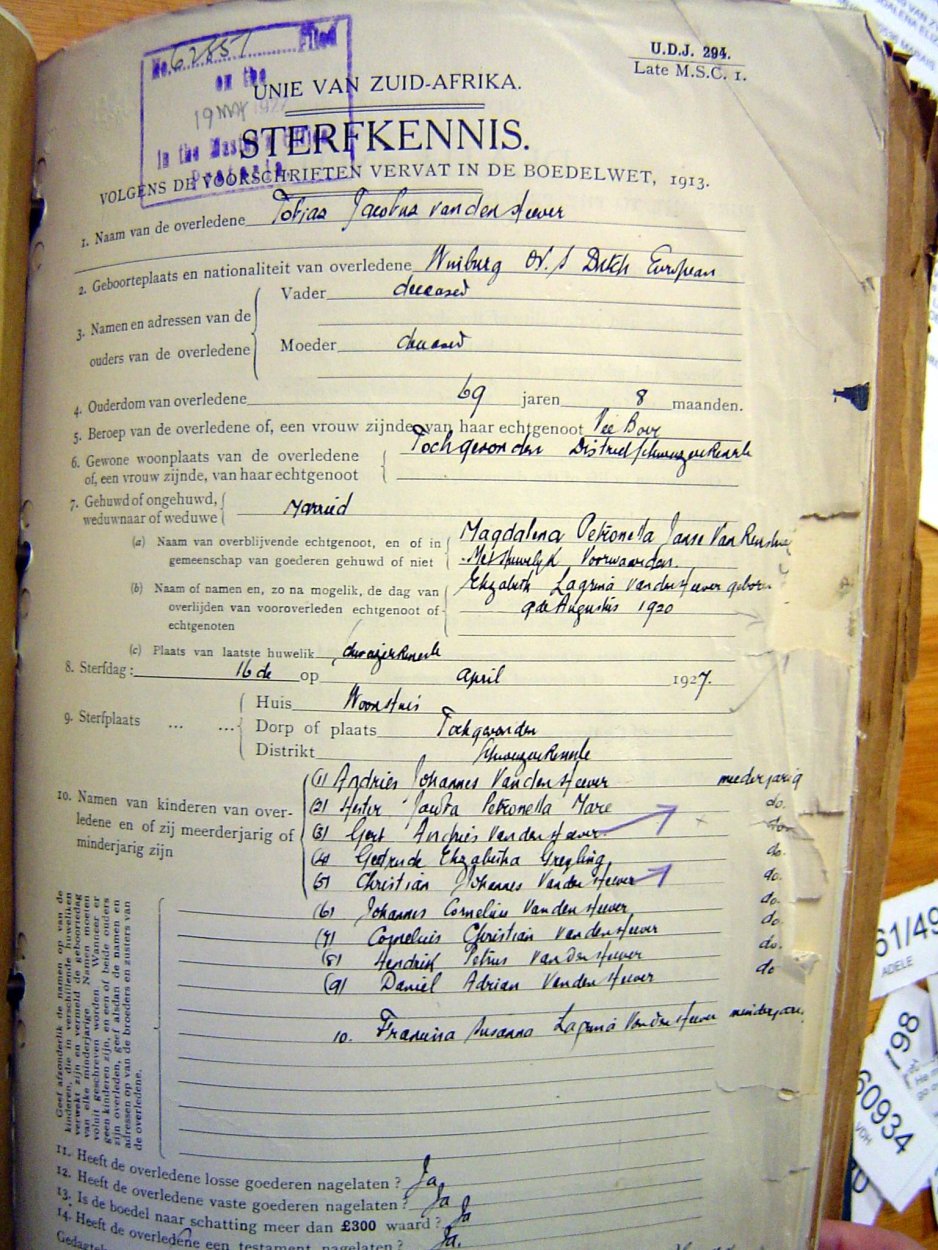 U.D.J. 294.
Late M.S.C. 1.
No. 62857 Filed
on the
19 MAY 1927
In the Master's Office
Pretoria
UNIE VAN ZUID-AFRIKA.
STERFKENNIS.
VOLGENS DE VOORSCHRIFTEN VERVAT IN DE BOEDELWET, 1913.
1. Naam van de overledene Tobias Jacobus van den Heever
2. Geboorteplaats en nationaliteit van overledene Winburg O.V.S Dutch European
3. Namen en adressen van de ouders van de overledene
Vader deceased
Moeder deceased
4. Ouderdom van overledene 69 jaren 8 maanden.
5. Beroep van de overledene of, een vrouw zijnde, van haar echtgenoot Vee Boer
6. Gewone woonplaats van de overledene Tochgevonden District Schweizer Reneke
of, een vrouw zijnde, van haar echtgenoot
7. Gehuwd of ongehuwd, weduwnaar of weduwe Married
(a) Naam van overblijvende echtgenoot, en of in Magdalena Petronella Janse Van
gemeenschap van goederen gehuwd of niet Met Huwelijk Voorwaarden.
(b) Naam of namen en, zo na mogelik, de dag van Elizabeth Lagrina van den Heever geboren
overlijden van vooroverleden echtgenoot of 9de Augustus 1920
echtgenoten
(c) Plaats van laatste huwelik Schweizer Reneke
8. Sterfdag: 16 de op april 1927.
9. Sterfplaats ... ...
Huis Woonhuis
Dorp of plaats Tochgevonden
Distrikt Schweizer Reneke
10. Namen van kinderen van overledene en of zij meerderjarig of minderjarig zijn
(1) Andries Johannes Van den Heever meederjarig
(2) Hester Jacoba Petronella Mare do.
(3) Gert Andries Van den Heever do.
(4) Gertrude Elizabetha Greyling do.
(5) Christian Johannes Van den Heever do.
(6) Johannes Cornelius Van den Heever do.
(7) Cornelius Christian Van den Heever do.
(8) Hendrik Petrus Van den Heever do.
(9) Daniel Adrian Van den Heever do
10. Francina Susanna Lagrina Van den Heever
Geef afzonderlik de namen op van de
kinderen, die in verschillende huweliken
verwekt zijn en vermeld de geboortedag
van elke minderjarige. Namen moeten
voluit geschreven worden. Wanneer er
geen kinderen zijn, en een of beide ouders
zijn overleden, geef alsdan de namen en
adressen op van de broeders en zusters van
de overledene.
11. Heeft de overledene losse goederen nagelaten? Ja
12. Heeft de overledene vaste goederen nagelaten? Ja
13. Is de boedel naar schatting meer dan £300 waard? Ja
14. Heeft de overledene een testament nagelaten? Ja.
61/49
ADELE
867
60934
VDH